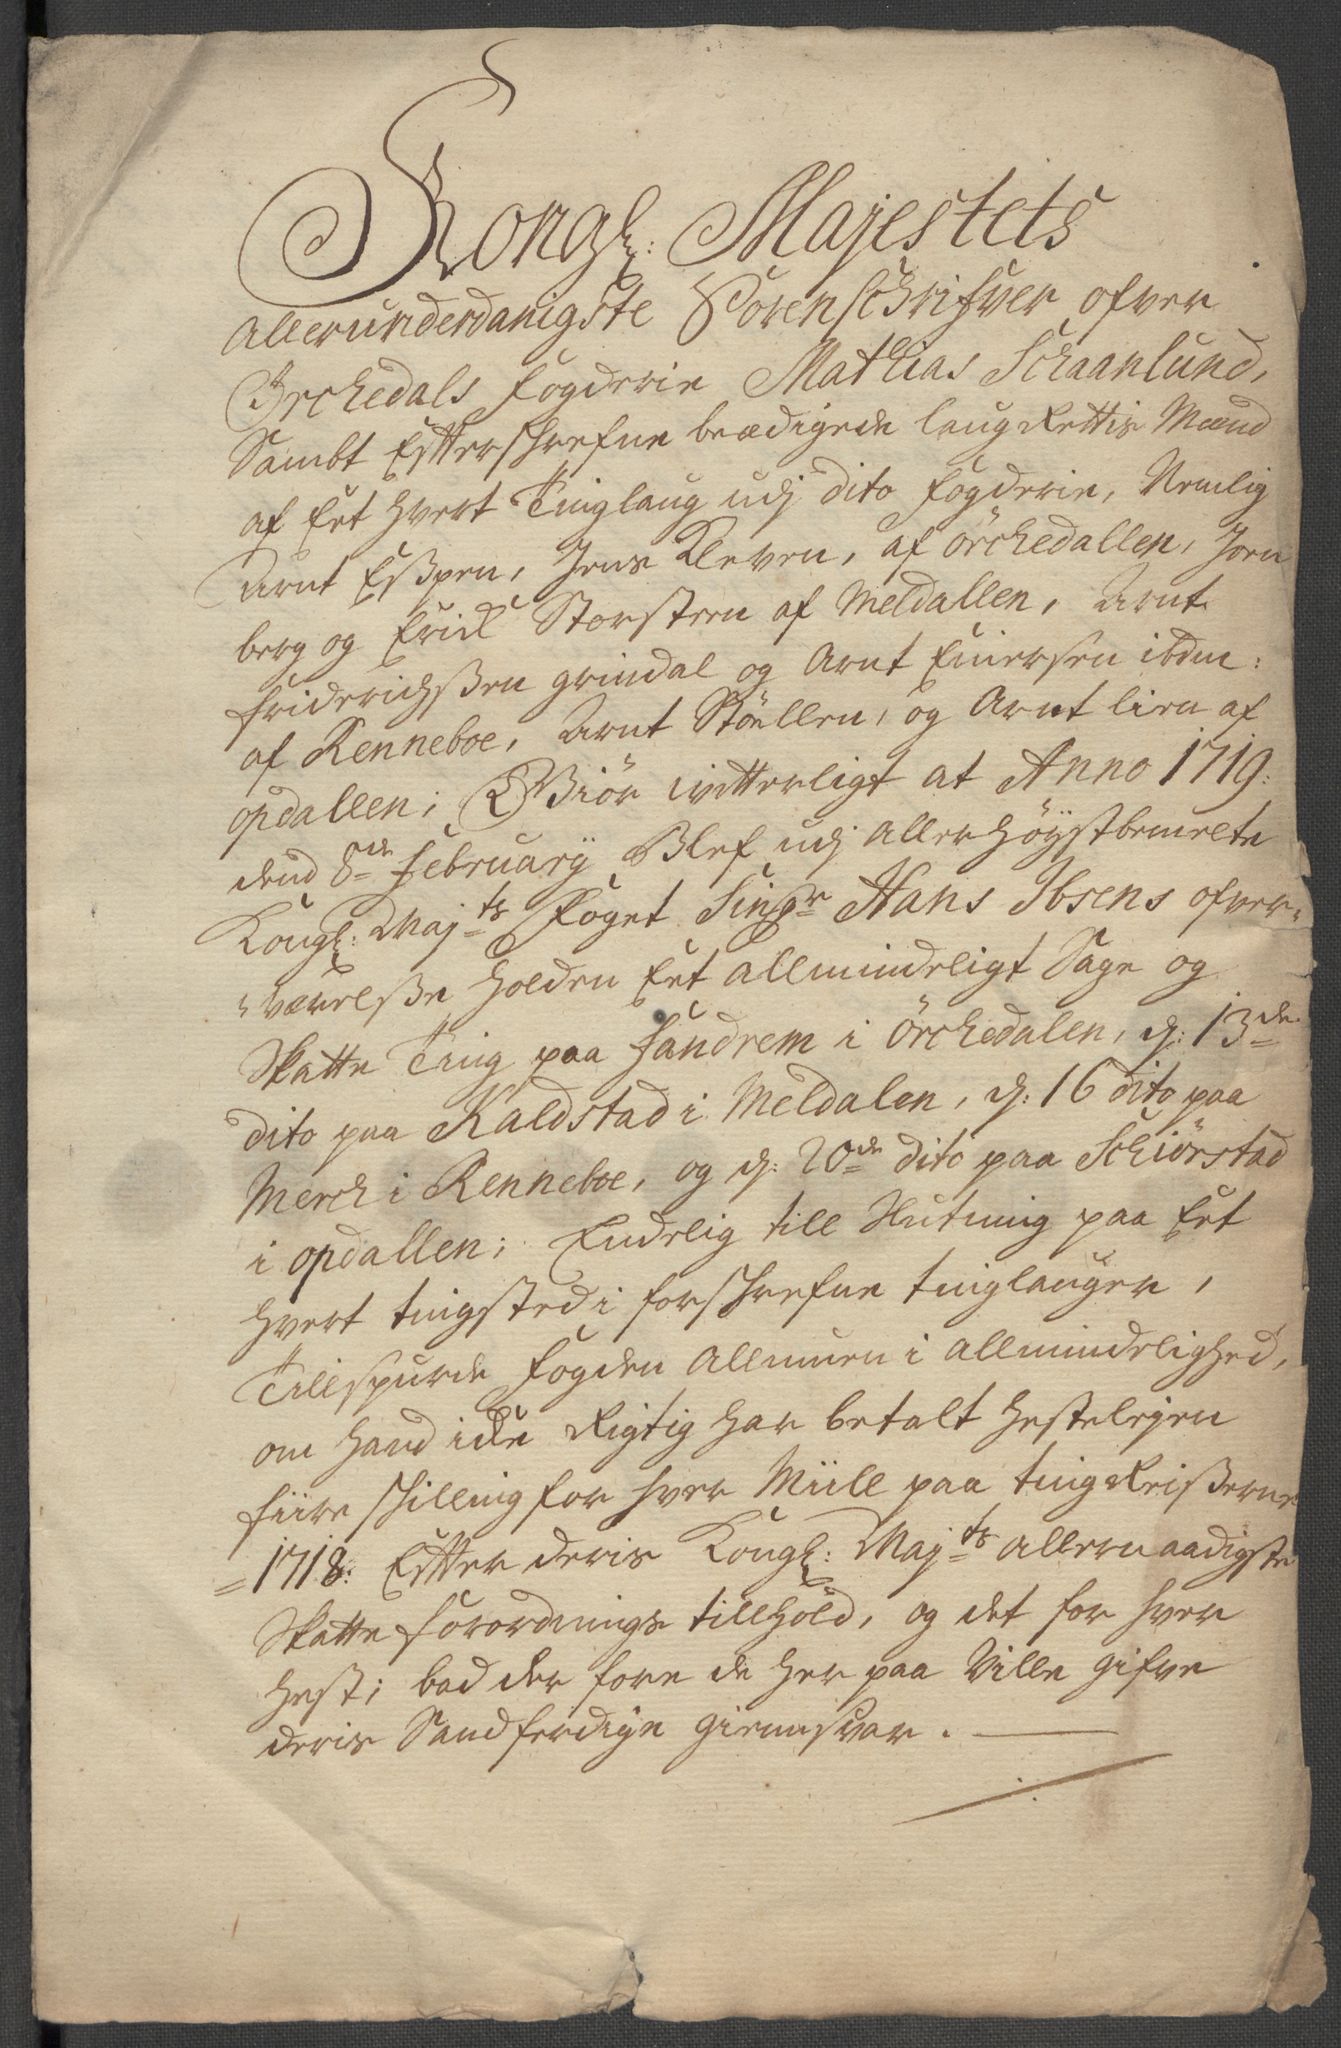 Kongl: Majestets
Allerunderdanigste Sorenschrifver ofver
Örchedals fogderie Mathias Schaanlund,
Sambt Efterschrefne beædigede laug Rettis Mænd
af Eet hvert Tinglaug udj dito fogderie, Nemlig
Arnt Eßpen, Jens Kleven, af Örchedallen, Joen
berg og Erich Storsteen af Meldallen, Arnt
friderichßen grindal og Arnt Einersen ibdm:
af Renneboe, Arnt Stöllen, og Arnt lien af
opdallen; Giör vitterligt at Anno 1719:
dend 8de february Blef udj Allerhöystbemelte
Kongl: Majts Foget Singr Hans Ibsens ofver-
værelße holden Eet allmindeligt Sage og
Skatte Ting paa fandrem i Örchedalen, d: 13de
dito paa Kaldstad i Meldalen, d: 16 dito paa
Merch i Renneboe, og d: 20de dito paa Schiörstad
i opdallen; Endelig till Slutning paa Eet
hvert tingsted i forschrefne tinglauger,
Tillspurde fogden Allmuen i allmindelighed,
om hand icke Rigtig har betalt hestelejen
fiire schilling for hver Miill paa tingReißerne
1718: Efter deris Kongl: Majts allernaadigste
Skatte forordnings tillhold, og det for hver
hest; bad der fore de her paa Ville gifve
deris Sandferdige giensvar.